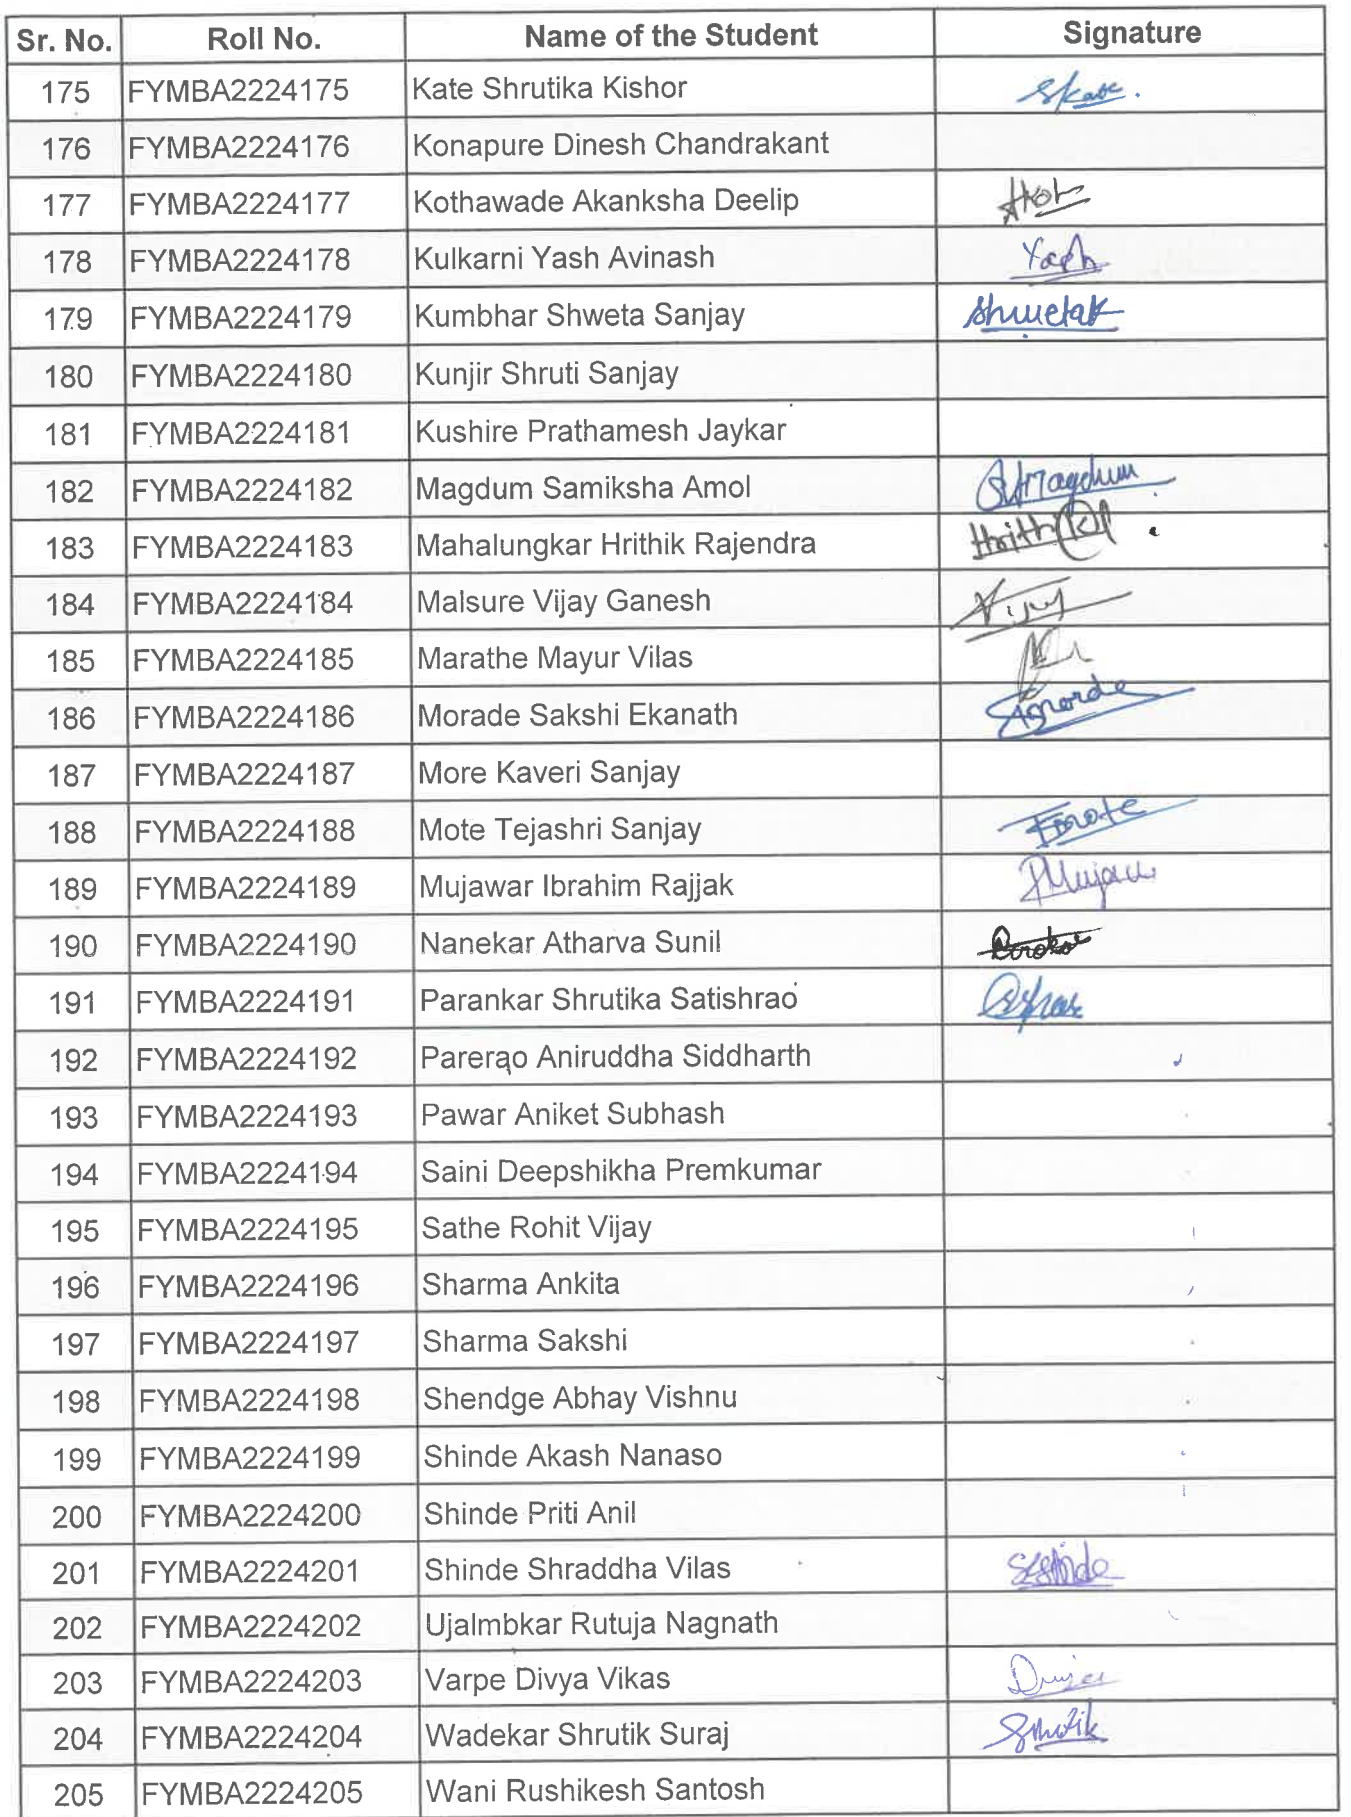 Sr. No. Roll No. Name of the Student Signature
175 FYMBA2224175 Kate Shrutika Kishor Skate.
176 FYMBA2224176 Konapure Dinesh Chandrakant
177 FYMBA2224177 Kothawade Akanksha Deelip
178 FYMBA2224178 Kulkarni Yash Avinash Yash
179 FYMBA2224179 Kumbhar Shweta Sanjay Shwetak
180 FYMBA2224180 Kunjir Shruti Sanjay
181 FYMBA2224181 Kushire Prathamesh Jaykar
182 FYMBA2224182 Magdum Samiksha Amol
183 FYMBA2224183 Mahalungkar Hrithik Rajendra
184 FYMBA2224184 Malsure Vijay Ganesh Vijay
185 FYMBA2224185 Marathe Mayur Vilas
186 FYMBA2224186 Morade Sakshi Ekanath
187 FYMBA2224187 More Kaveri Sanjay
188 FYMBA2224188 Mote Tejashri Sanjay Tmote
189 FYMBA2224189 Mujawar Ibrahim Rajjak
190 FYMBA2224190 Nanekar Atharva Sunil
191 FYMBA2224191 Parankar Shrutika Satishrao
192 FYMBA2224192 Parerao Aniruddha Siddharth
193 FYMBA2224193 Pawar Aniket Subhash
194 FYMBA2224194 Saini Deepshikha Premkumar
195 FYMBA2224195 Sathe Rohit Vijay
196 FYMBA2224196 Sharma Ankita
197 FYMBA2224197 Sharma Sakshi
198 FYMBA2224198 Shendge Abhay Vishnu
199 FYMBA2224199 Shinde Akash Nanaso
200 FYMBA2224200 Shinde Priti Anil
201 FYMBA2224201 Shinde Shraddha Vilas
202 FYMBA2224202 Ujalmbkar Rutuja Nagnath
203 FYMBA2224203 Varpe Divya Vikas
204 FYMBA2224204 Wadekar Shrutik Suraj
205 FYMBA2224205 Wani Rushikesh Santosh